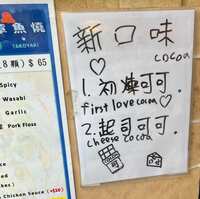 章魚燒
TAKOYAKI
8顆) $65
Spicy
Wasabi
Garlic
Pork Floss
Chicken Sauce (+$10)
新口味
cocoa
1. 初煉可可.
first love cocoa
2. 起司可可.
cheese cocoa